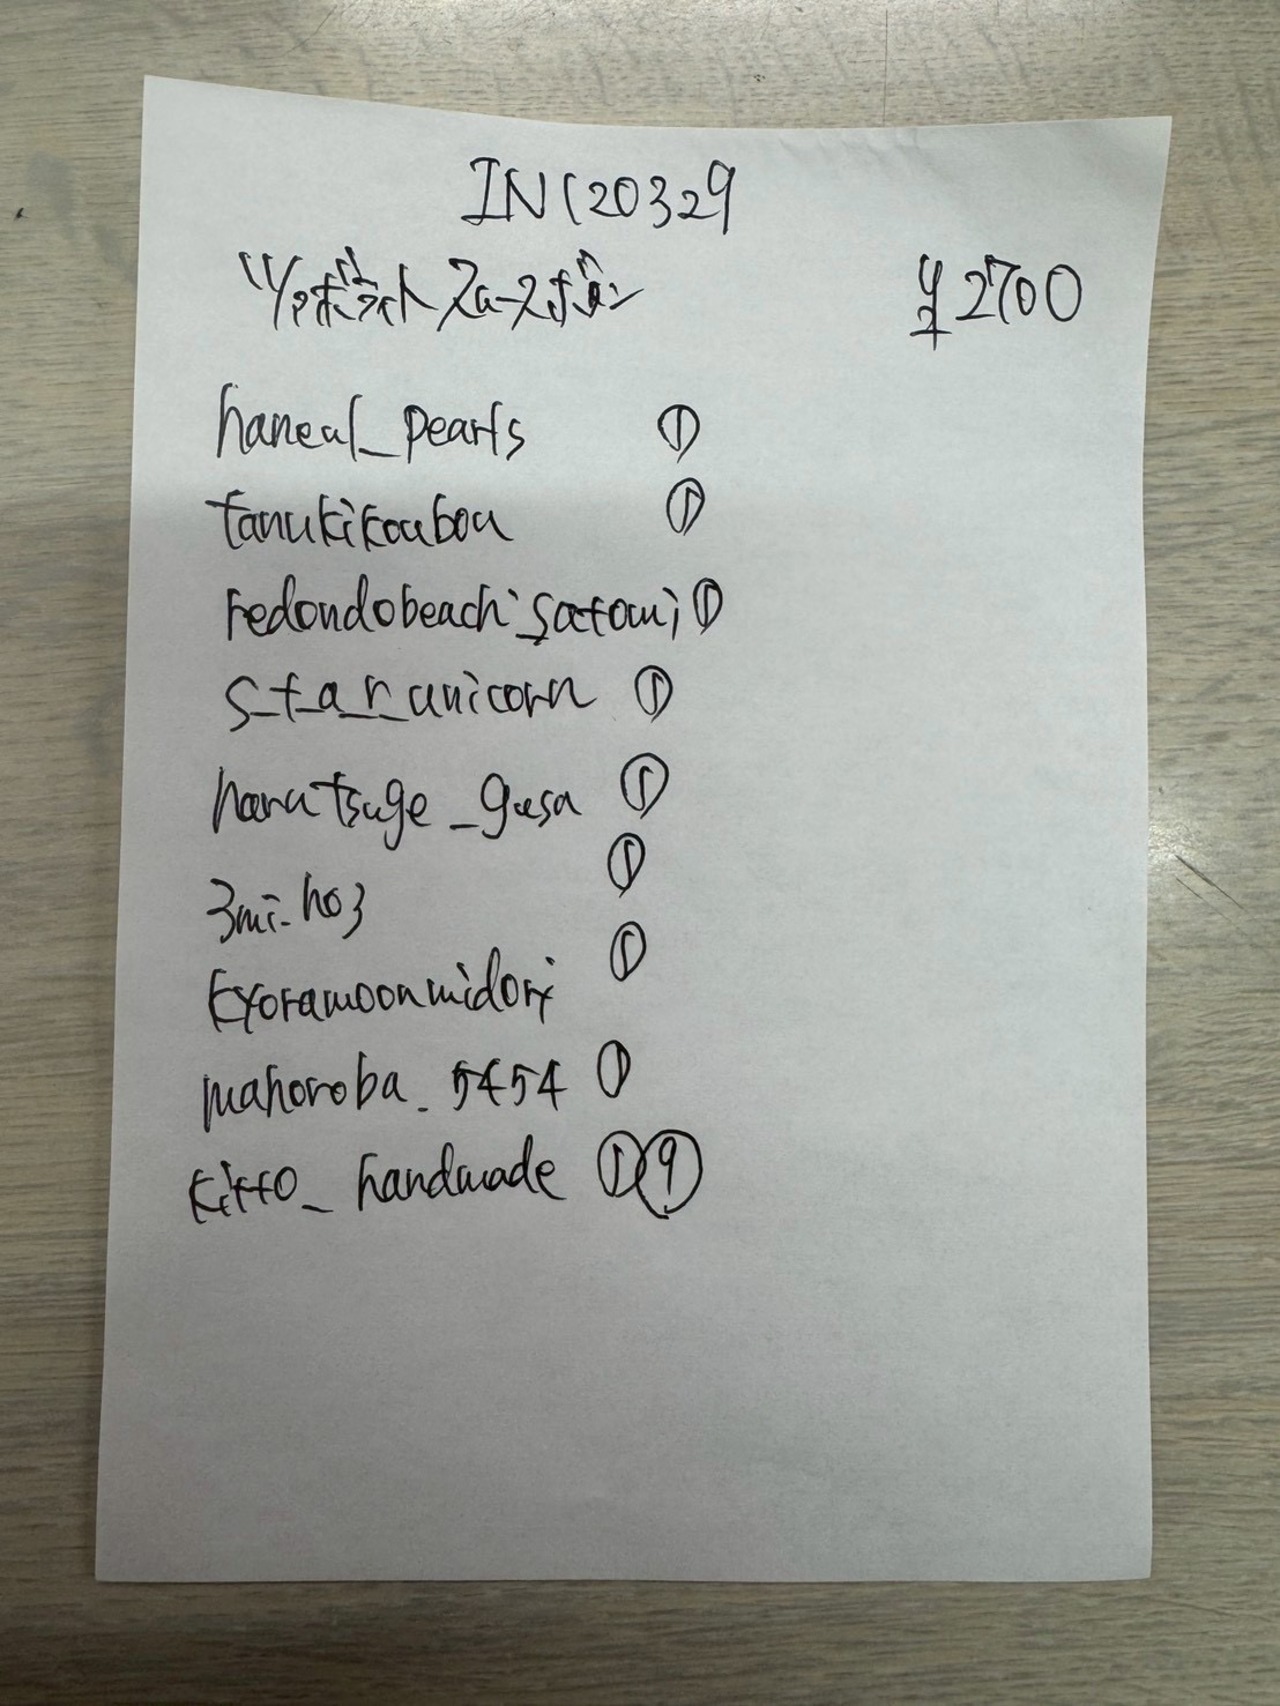 IN120329
ツァボライトスムースボタン ¥2700
haneul_pearls ①
tanukikoubou ①
redondobeach_satomi ①
s_t_a_r_unicorn ①
hanatsuge_gusa ①
3mi_ho3 ①
kyoramoonmidori ①
mahoroba_5454 ①
kitto_handmade ① ⑨